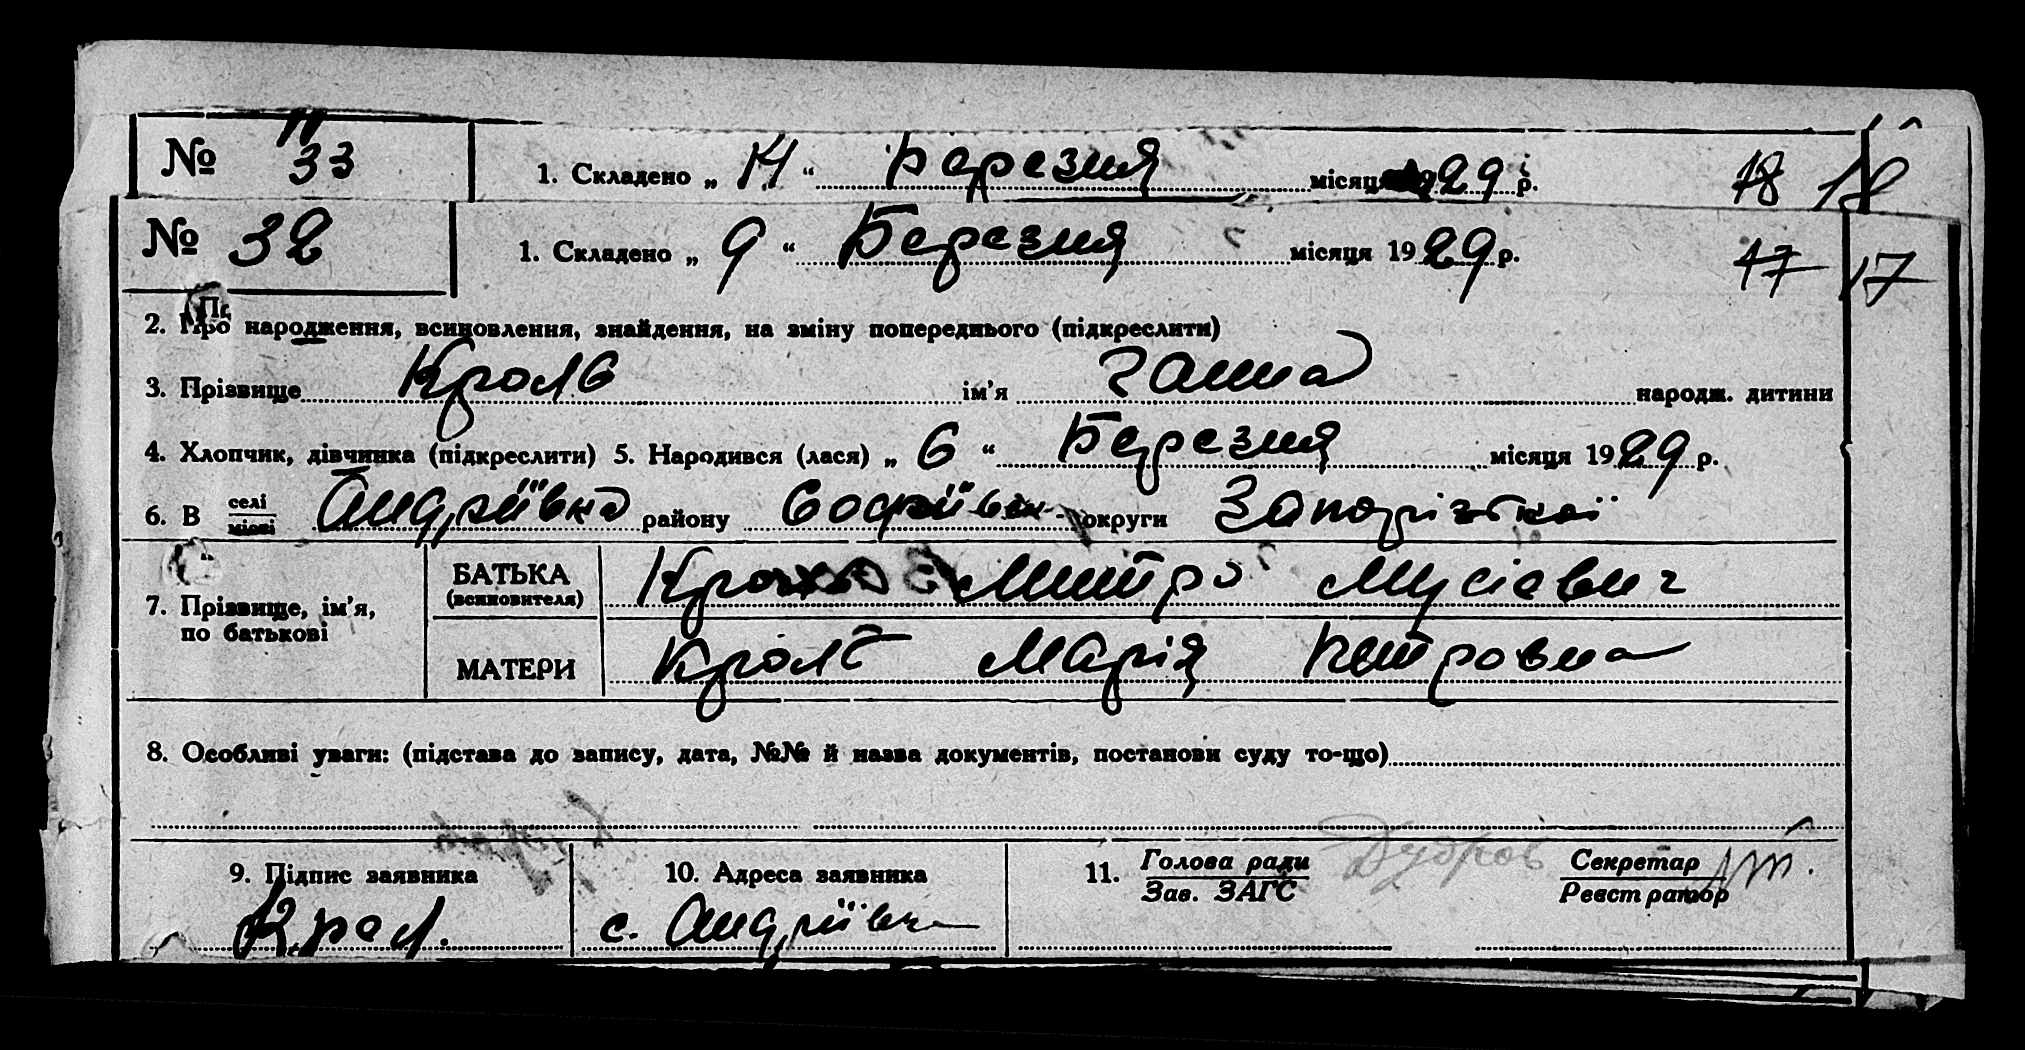 № 33 1. Складено „ 14 “ Березня місяця 1929 р. 18 18
№ 32 1. Складено „ 9 “ Березня місяця 1929 р. 17 17
2. Про народження, всиновлення, знайдення, на зміну попереднього (підкреслити)
3. Прізвище Кроль ім'я Ганна народж. дитини
4. Хлопчик, дівчинка (підкреслити) 5. Народився (лася) „ 6 “ Березня місяця 1929 р.
6. В селі/місті Андріївка району Софіївськ округи Запорізської
7. Прізвище, ім'я, по батькові
БАТЬКА (всиновителя) Митро Мусієвич
МАТЕРИ Кроль Марія Петровна
8. Особливі уваги: (підстава до запису, дата, №№ й назва документів, постанови суду то-що)
9. Підпис заявника 10. Адреса заявника 11. Голова ради Секретар
Зав. ЗАГС Реєстратор
Крол. с. Андріївка